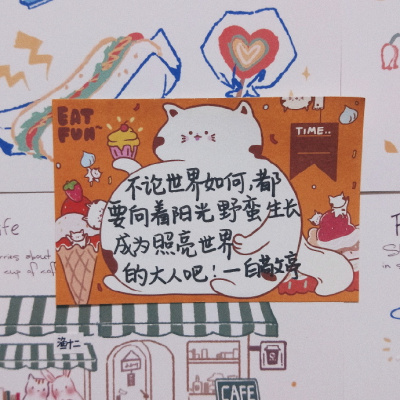 EAT
FUN
TIME..
不论世界如何,都
要向着阳光野蛮生长
成为照亮世界
的大人吧!—白敬亭
fe
rries about
cup of
渔十二
CAFE